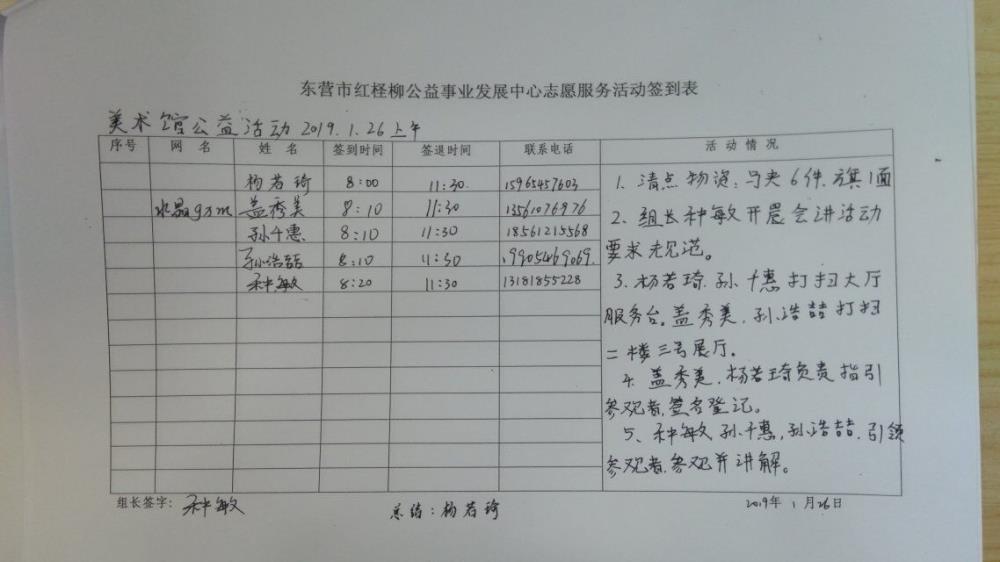 东营市红柽柳公益事业发展中心志愿服务活动签到表
美术馆公益活动 2019.1.26上午
序号 网名 姓名 签到时间 签退时间 联系电话 活动情况
杨若琦 8:00 11:30 15965457603
水晶gym 盖秀美 8:10 11:30 13561076976
孙千惠 8:10 11:30 18561215568
孙浩喆 8:10 11:30 19905469069
种敏 8:20 11:30 13181855228
1. 清点物资:马夹6件.旗1面
2. 组长种敏开晨会讲活动
要求
3. 杨若琦.孙千惠打扫大厅
服务台。盖秀美.孙浩喆打扫
二楼三号展厅.
4. 盖秀美.杨若琦负责指引
参观者.签名登记。
5、种敏.孙千惠,孙浩喆.引领
参观者.参观并讲解。
组长签字: 种敏 总结:杨若琦 2019年1月26日